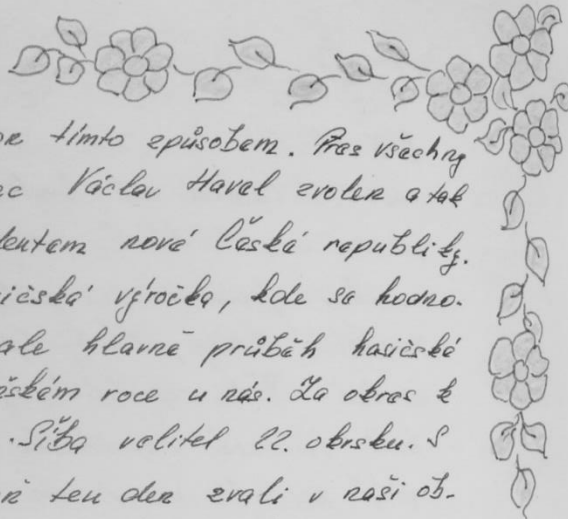 tímto způsobem. Přes všechny
Václav Havel zvolen a tak
nové České republiky.
výročka, kde se hodno-
ale hlavně průběh hasičské
roce u nás. Za okres k
Šíba velitel 22. okrsku. S
ten den zvali v naši ob-